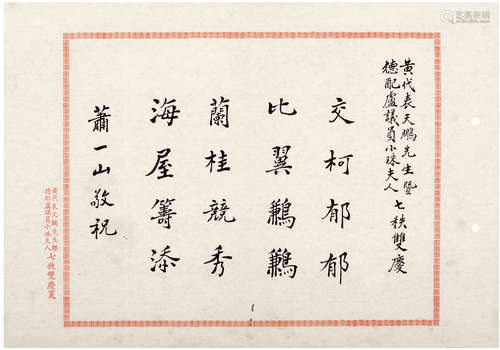 黃代表天鵬先生暨
德配盧議員小珠夫人 七秩雙慶
交柯郁郁
比翼鶼鶼
蘭桂競秀
海屋籌添
蕭一山敬祝
黃代表天鵬先生暨
德配盧議員小珠夫人 七秩雙慶箋